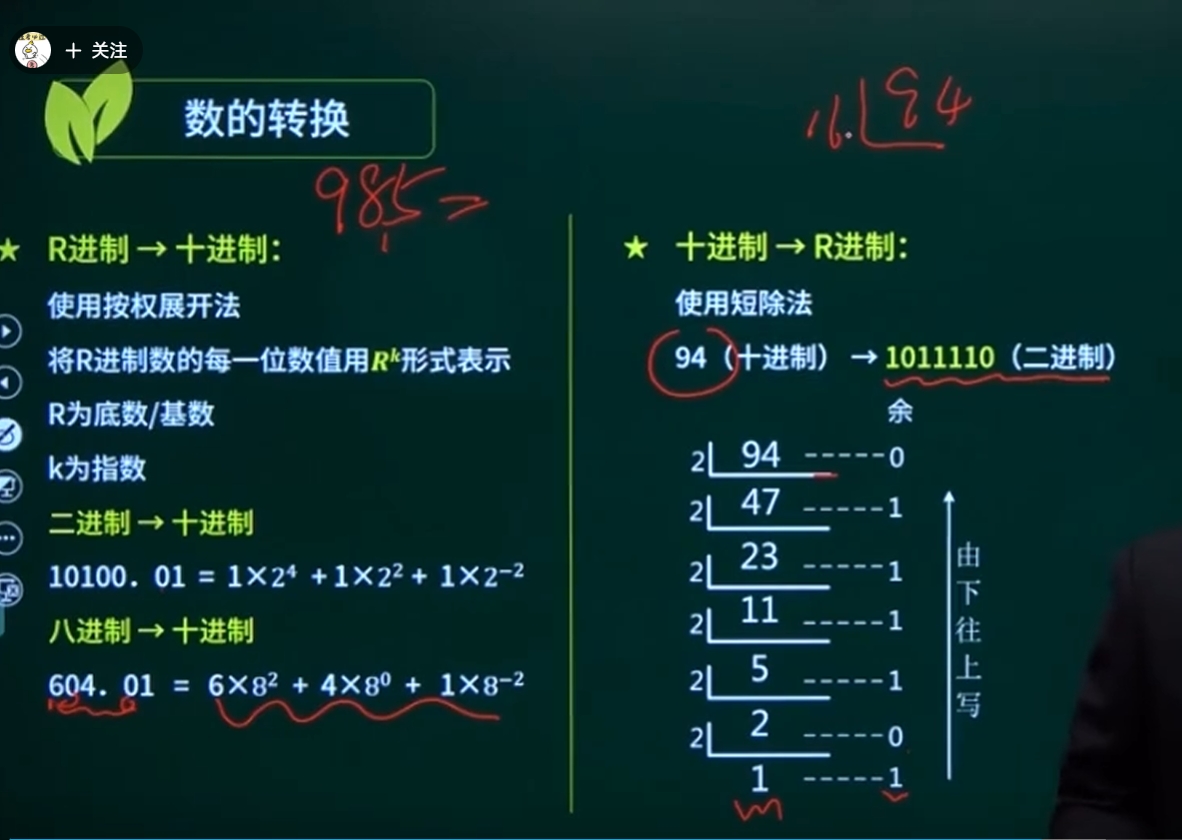 + 关注
数的转换
985=
★ R进制→十进制：
使用按权展开法
将R进制数的每一位数值用Rᵏ形式表示
R为底数/基数
k为指数
二进制→十进制
10100.01 = 1×2⁴ +1×2²+ 1×2⁻²
八进制→十进制
604.01 = 6×8² + 4×8⁰ + 1×8⁻²
16 94
★ 十进制→R进制：
使用短除法
94（十进制）→1011110（二进制）
余
2 94 -----0
2 47 -----1
2 23 -----1
2 11 -----1
2 5 -----1
2 2 -----0
1 -----1
由下往上写